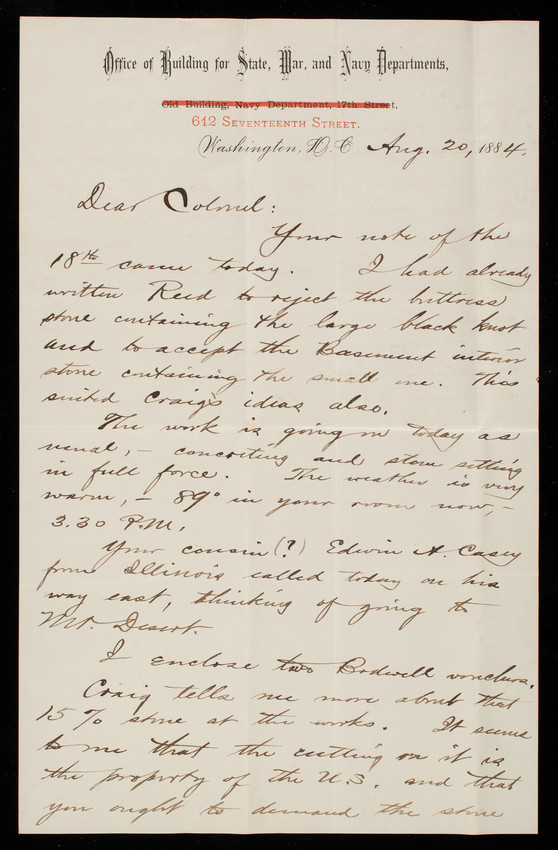 Office of Building for State, War, and Navy Departments,
Old Building, Navy Department, 17th Street,
612 Seventeenth Street.
Washington, D.C. Aug. 20, 1884.
Dear Colonel:
Your note of the
18th came today. I had already
written Reed to reject the buttress
stone containing the large black knot
and to accept the Basement interior
stone containing the small one. This
suited Craig's ideas also.
The work is going on today as
usual, – concreting and stone setting
in full force. The weather is very
warm, – 89° in your room now, –
3.30 P.M.
Your cousin (?) Edwin A. Casey
from Illinois called today on his
way east, thinking of going to
Mt. Desert.
I enclose two Bodwell vouchers.
Craig tells me more about that
15% stone at the works. It seems
to me that the cutting on it is
the property of the U.S. and that
you ought to demand the stone